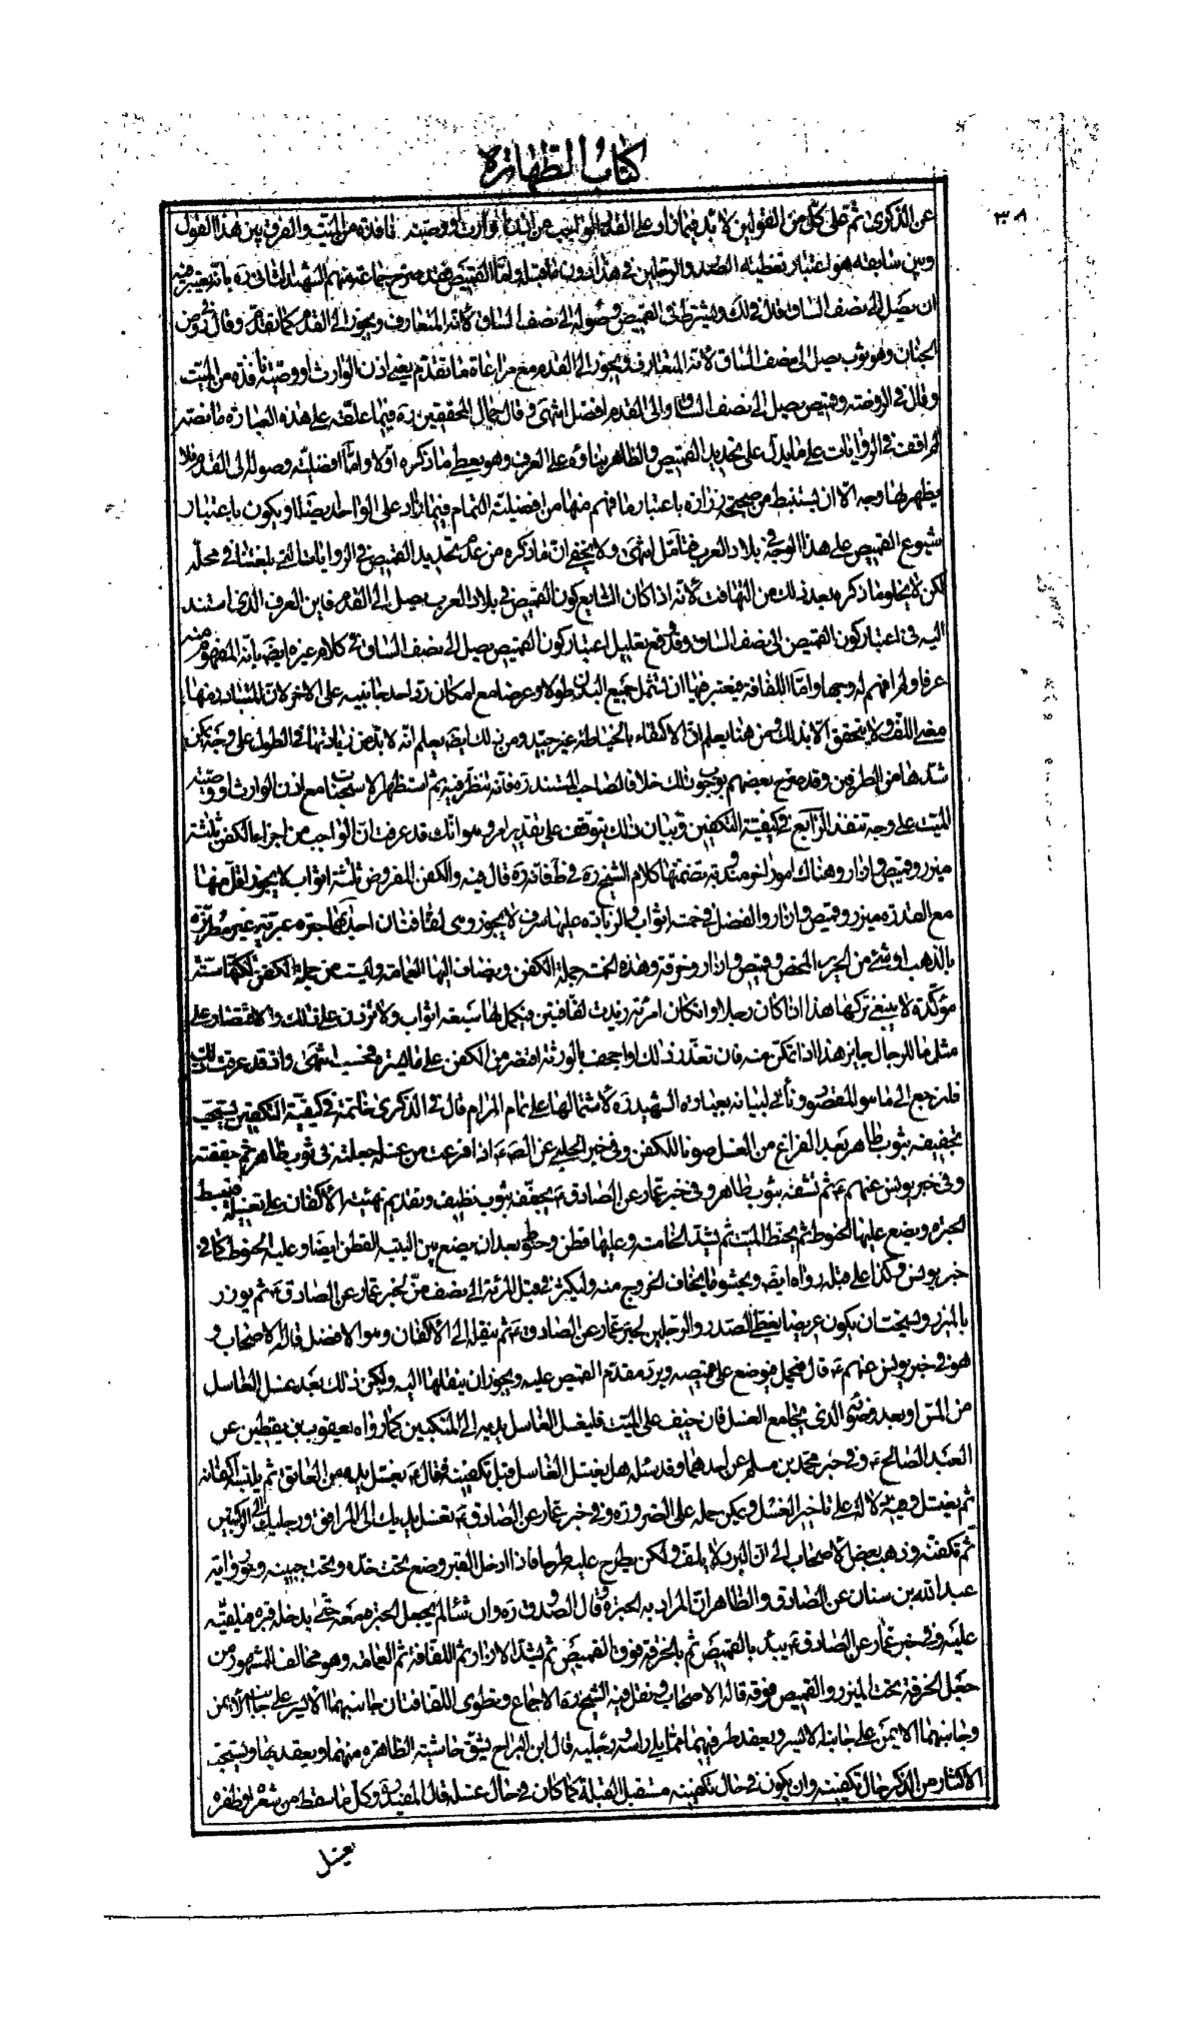 كتاب الطهارة
٣٠٨
عن الذكرى ثم على كل من القولين لا بد فيما زاد على القدر الواجب من اذن الوارث او وصيته نافذة من الميت والفرق بين هذا القول
وبين سابقه هو اعتبار تغطيته الصدر والرجلين في هذا دون ما قبله واما القميص فقد صرح جماعة منهم الشهيد الثاني ره بانه يعتبر فيه
ان يصل الى نصف الساق قال في لك ويشترط في القميص وصوله الى نصف الساق لانه المتعارف ويجوز الى القدم كما تقدم وقال في روض
الجنان وهو ثوب يصل الى نصف الساق لانه المتعارف ويجوز الى القدم مع مراعاة ما تقدم يعني اذن الوارث او وصيته نافذة من الميت
وقال في الروضه وقميص يصل الى نصف الساق والى القدم افضل انتهى وقال جمال المحققين ره فيما علقه على هذه العبارة ما نصه
لم اقف في الروايات على ما يدل على تحديد القميص والظاهر بناؤه على العرف وهو يعطي ما ذكره اولا واما افضليته وصوله الى القدم فلا
يظهر لها وجه الا ان يستنبط من صحيحة زرارة باعتبار ما فهم منها من افضليته التمام فيما زاد على الواحد ايضا او يكون باعتبار
شيوع القميص على هذا الوجه في بلاد العرب فتامل انتهى ولا يخفى ان ما ذكره من عدم تحديد القميص في الروايات التي بلغتنا في محله
لكن لا يخلو ما ذكره بعد ذلك من التهافت لانه اذا كان الشايع كون القميص في بلاد العرب يصل الى القدم فاين العرف الذي استند
اليه في اعتبار كون القميص الى نصف الساق وقد وقع تعليل اعتبار كون القميص يصل الى نصف الساق في كلام غيره ايضا بانه المفهوم منه
عرفا ولم افهم له وجها واما اللفافة فيعتبر فيها ان تشمل جميع البدن طولا وعرضا مع امكان رد احد جانبيه على الاخر لان المتبادر منها
معنى اللف ولا يتحقق الا بذلك ومن هنا يعلم ان الاكتفاء بالخياطة غير جيد ومن ذلك ايضا يعلم انه لا بد من زيادتها في الطول على وجه يمكن
شدها من الطرفين وقد صرح بعضهم بوجوب ذلك خلافا لصاحب المستند ره فانه تنظر فيه ثم استظهر الاستحباب مع اذن الوارث او وصيته
الميت على وجه تنفذ الرابع في كيفية التكفين وبيان ذلك يتوقف على تقديم امر وهو انك قد عرفت ان الواجب من اجزاء الكفن ثلثة
ميزر وقميص وازار وهناك امور اخر مندوبة تضمنتها كلام الشيخ ره في ط فانه ره قال فيه والكفن المفروض ثلثة اثواب لا يجوز اقل منها
مع القدرة ميزر وقميص وازار والفضل في خمسة اثواب والزيادة عليها سرف لا يجوز وهي لفافتان احديهما حبره عبريه غير مطرزة
بالذهب او شيء من الحرير المحض وقميص وازار وخرقة وهذه الخمسة جملة الكفن ويضاف اليها العمامة وليست من جملة الكفن لكنها سنة
مؤكدة لا ينبغي تركها هذا اذا كان رجلا وان كان امرئة زيدت لفافتين فيكمل لها سبعة اثواب ولا تزد على ذلك والاقتصار على
مثل ما للرجال جايز هذا اذا تمكن منه فان تعذر ذلك او اجحف بالورثة اقتصر من الكفن على ما يستره فحسب انتهى واذ قد عرفت ذلك
فلنرجع الى ما هو المقصود ونأتي لبيانه بعبارة الشهيد ره لاشتمالها على تمام المرام قال في الذكرى خاتمة في كيفية التكفين يستحب
تجفيفه بثوب طاهر بعد الفراغ من الغسل صونا للكفن وفي خبر الحلبي عن الص ع اذا فرغت من غسله جعلته في ثوب طاهر ثم جففته
وفي خبر يونس عنهم ع ثم نشفه بثوب طاهر وفي خبر عمار عن الصادق ع يجففه بثوب نظيف وتقديم تهيئة الاكفان على تغسيله فيبسط
الحبرة ويضع عليها الحنوط ثم يحنط الميت ثم يشد الخامسة وعليها قطن وحنوط بعد ان يضع بين اليتيه القطن ايضا وعليه الحنوط كما في
خبر يونس وكذا على قبله رواه ايضا ويحشو ما يخاف الخروج منه وليكثر في قبل المرئة الى نصف من لخبر عمار عن الصادق ع ثم يوزر
بالميزر ويستحب ان يكون عريضا يغطي الصدر والرجلين لخبر عمار عن الصادق ع ثم ينقله الى الاكفان وهو الافضل قاله الاصحاب و
هو في خبر يونس عنهم ع قال فيحمل فيوضع على قميصه ويرد مقدم القميص عليه ويجوز ان ينقلها اليه وليكن ذلك بعد غسل الغاسل
من المس او بعد وضوئه الذي يجامع الغسل فان خيف على الميت فليغسل الغاسل يديه الى المنكبين كما رواه يعقوب بن يقطين عن
العبد الصالح ع وفي خبر محمد بن مسلم عن احدهما وقد سئله هل يغتسل الغاسل قبل تكفينه فقال ع يغسل يديه من العاتق ثم يلبسه اكفانه
ثم يغتسل وفيه دلالة على تاخير الغسل ويمكن حمله على الضرورة وفي خبر عمار عن الصادق ع تغسل يديك الى المرافق ورجليك الى الركبتين
ثم تكفنه وذهب بعض الاصحاب الى ان البرد لا يلف ولكن يطرح عليه طرحا فاذا ادخل القبر وضع تحت خده وتحت جنبه وهو رواية
عبد الله بن سنان عن الصادق ع والظاهر ان المراد به الحبرة وقال الصدوق ره وان شاء لم يجعل الحبرة معه حتى يدخله قبره فيلقيه
عليه وفي خبر عمار عن الصادق ع يبدء بالقميص ثم بالخرقة فوق القميص ثم يشد الازار ثم اللفافة ثم العمامة وهو مخالف المشهور من
جعل الخرقة تحت الميزر والقميص فوقه قاله الاصحاب ونقل فيه الشيخ ره الاجماع وتطوى اللفافتان جانبهما الايسر على جانبه الايمن
وجانبهما الايمن على جانبه الايسر ويعقد طرفيهما مما يلي راسه ورجليه قال ابن البراج يشق حاشيته الظاهرة منهما ويعقد بها ويستحب
الاكثار من الذكر حال تكفينه وان يكون في حال تكفينه مستقبل القبلة كما كان في حال غسله قال المفيد ره وكل ما سقط من شعره او ظفره
يغسل